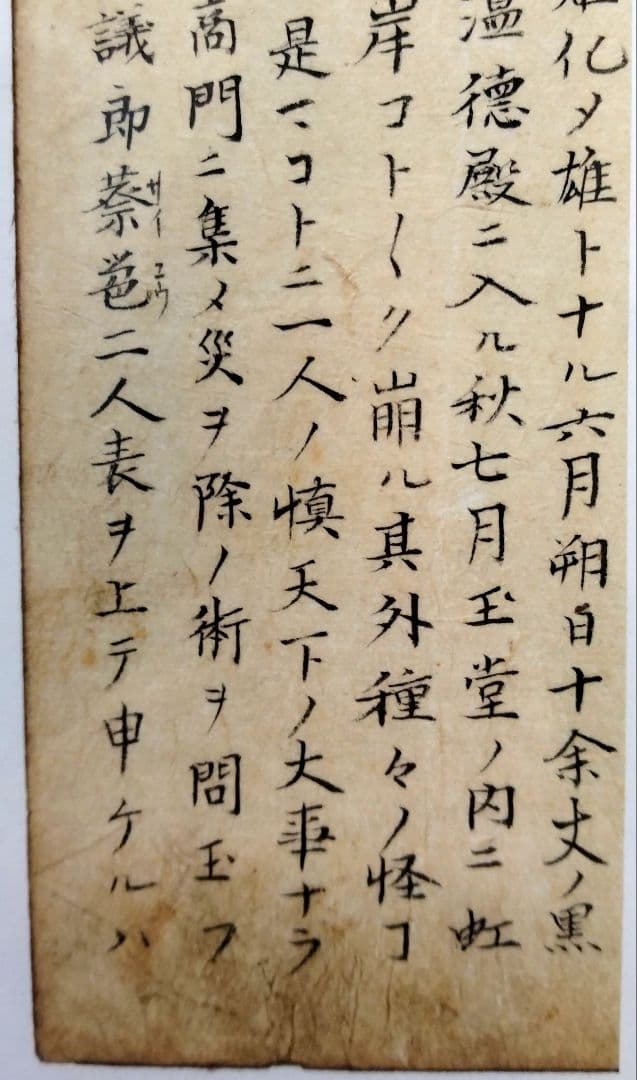 化メ雄トナル六月朔日十余丈ノ黒
温德殿ニ入ル秋七月玉堂ノ内ニ虹
岸コト〱ク崩ル其外種々ノ怪コ
是マコトニ一人ノ慎天下ノ大事ナラ
商門ニ集メ災ヲ除ノ術ヲ問玉フ
議郎蔡邕二人表ヲ上テ申ケルハ
サイ ユウ